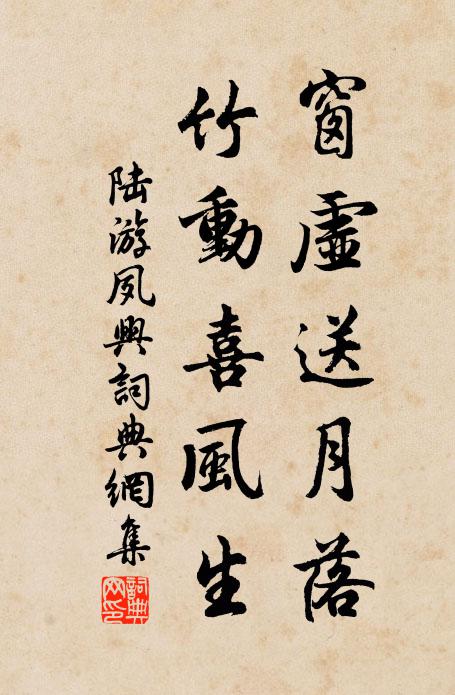 窗虛送月落
竹動喜風生
陸游夙興詞典網集
詞典網印